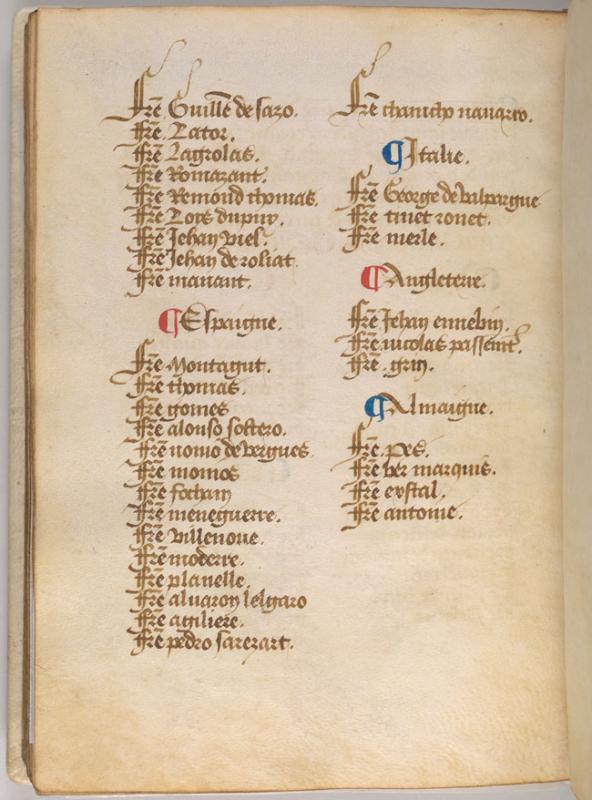 Frē Guillē de sazo.
frē. Zator.
frē Zagrolas.
frē Romazant.
frē Remond thomas.
frē Loys dupuy.
frē Jehan viel.
frē Jehan de roliat
frē manant.
¶Espaigne.
Frē Montagut.
frē thomas.
frē gomes
frē alonso soltero.
frē nonio de vergues
frē momos
frē fochan
frē meneguerre.
frē villenove.
frē moderre.
frē planelle.
frē alvaron lelgaro
frē agiliere.
frē pedro sarezart.
Frē chanicho navarro.
¶Italie.
Frē George de valpargue
frē tinet ronet.
frē merle.
¶Angleterre.
Frē Jehan ennebin.
frē. nicolas passent.
frē. grin.
¶Almaigne.
Frē. pes.
frē her marquis.
frē erstal.
frē antonie.